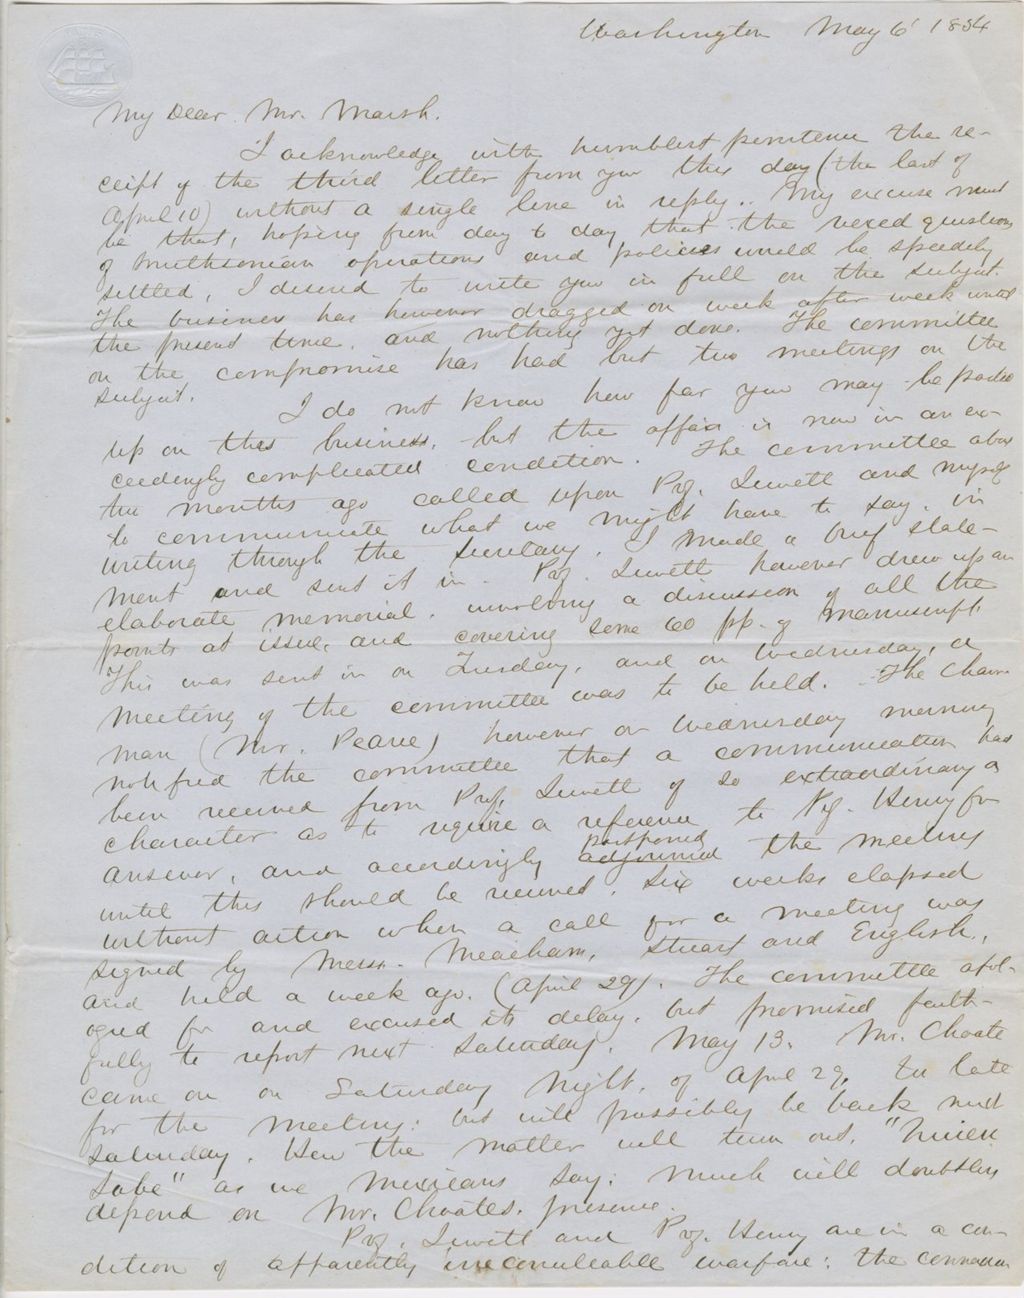 Washington May 6 1854
My Dear Mr. Marsh.
I acknowledge with humblest penitence the re-
ceipt of the third letter from you this day (the last of
April 10) without a single line in reply. My excuse must
be that, hoping from day to day that the vexed questions
of Smithsonian operations and policies would be speedily
settled, I desired to write you in full on the subject.
The business has however dragged on week after week until
the present time, and nothing yet done. The committee
on the compromise has had but two meetings on the
subject.
I do not know how far you may be posted
up on this business, but the affair is now in an ex-
ceedingly complicated condition. The committee about
two months ago called upon Prof. Jewett and myself
to communicate what we might have to say, in
writing through the Secretary. I made a brief state-
ment and sent it in. Prof. Jewett however drew up an
elaborate memorial, involving a discussion of all the
points at issue, and covering some 60 pp. of manuscript.
This was sent in on Tuesday, and on Wednesday, a
meeting of the committee was to be held. The Chair-
man (Mr. Pearce) however on Wednesday morning
notified the committee that a communication had
been received from Prof. Jewett of so extraordinary a
character as to require a reference to Prof. Henry for
answer, and accordingly adjourned postponed the meeting
until this should be received. Six weeks elapsed
without action when a call for a meeting was
signed by Messr. Meacham, Stuart and English,
and held a week ago. (April 29). The committee apol-
ogized for and excused its delay, but promised faith-
fully to report next Saturday, May 13. Mr. Choate
came on on Saturday night, of April 29, too late
for the meeting: but will possibly be back next
Saturday. How the matter will turn out, "Quien
Sabe" as we Mexicans say; much will doubtless
depend on Mr. Choates. presence.
Prof. Jewett and Prof. Henry are in a con-
dition of apparently irreconcileable warfare: the connexion